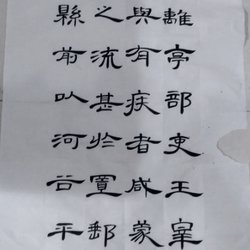 離亭部吏王皐
與有疾者咸蒙
之流甚於置郵
縣前以河谷平